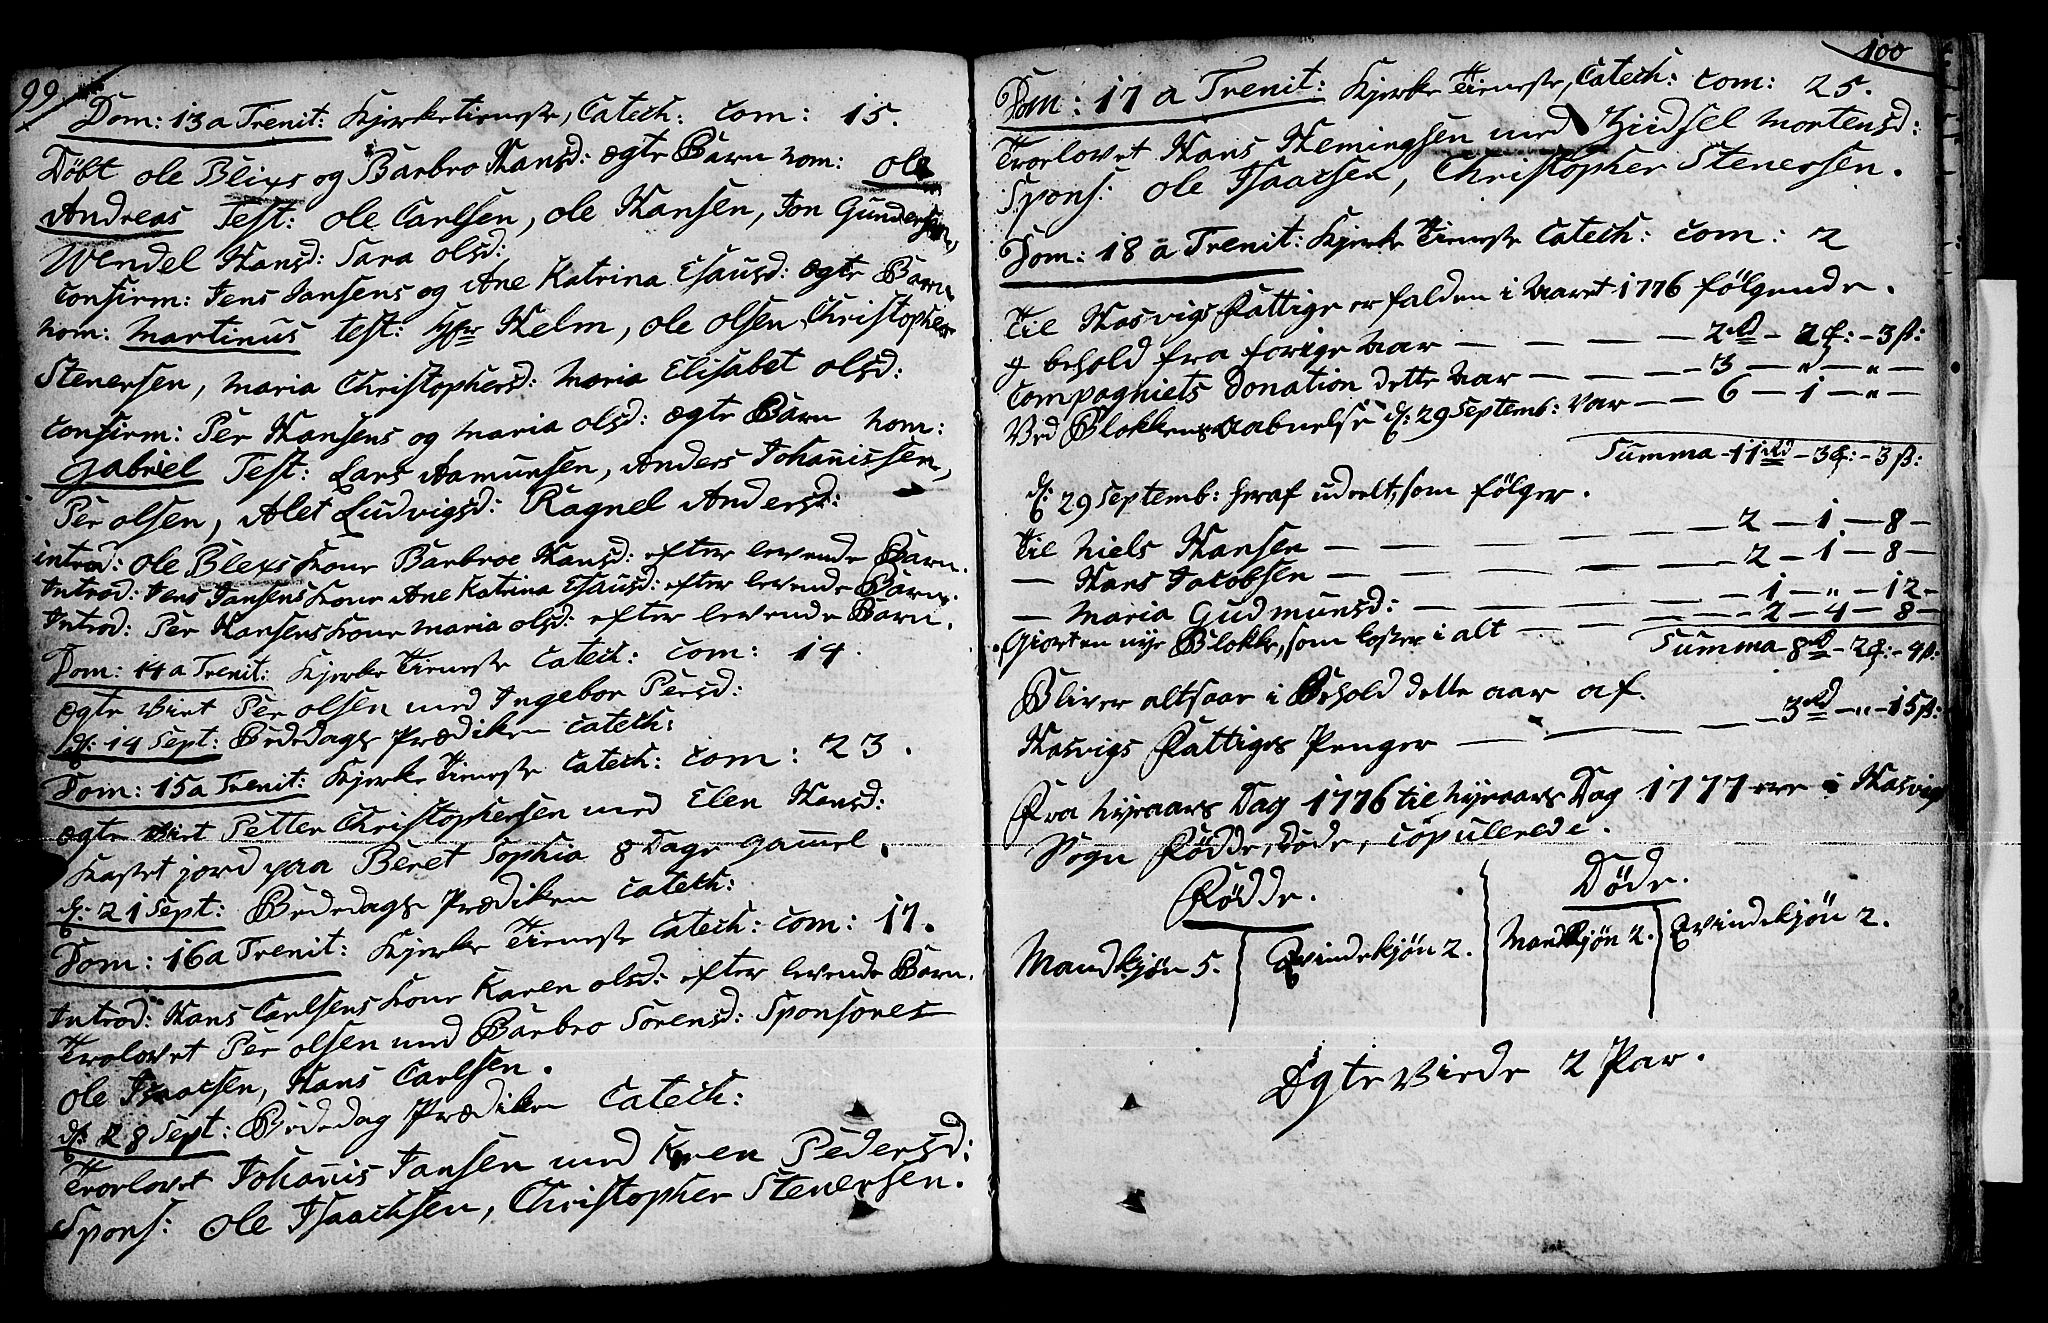 99
Dom: 13 a Trenit: Kjerke tieneste, Catech: Com: 15.
Døbt Ole Blixs og Barbro Hansd: ægte Barn nom: Ole
Andreas Test: Ole Carlsen, Ole Hansen, Jon Gundersen,
Wendel Hansd: Sara olsd:
Confirm: Jens Jansens og Ane Katrina Esausd: ægte Barn
nom: Martinus test: Hr Helm, Ole Olsen Christopher
Stenersen, Maria Christophersd: Maria Elisabet olsd:
Confirm: Per Hansens og Maria olsd: ægte Barn nom:
Gabriel Test: Lars Aamunsen, Anders Johanissen,
Per olsen, Alet Ludvigsd: Ragnel Andersd:
introd: Ole Blexs Kone Barbroe Hansd: efter levende Barn.
Introd: Jens Jansens Kone Ane Katrina Esausd: efter levende Barn.
Introd: Per Hansens Kone Maria olsd: efter levende Barn.
Dom: 14 a Trenit: Kjerke Tieneste Catech: Com: 14.
Ægte Viet Per olsen med Ingebor Persd:
d: 14 Sept: Bededags Prædiken Catech:
Dom: 15 a Trenit: Kjerke Tieneste Catech: Com: 23.
Ægte Viet Petter Christophersen med Elen Hansd:
Kastet jord paa Beret Sophia 8 Dage gammel.
d: 21 Sept: Bededags Prædiken Catech:
Dom: 16 a Trenit: Kjerke Tieneste Catech: Com: 17.
Introd: Hans Carlsens Kone Karen olsd: efter levende Barn.
Trolovet Per olsen med Barbro Sorensd: Sponsores
Ole Isaacsen, Hans Carlsen.
d: 28 Sept: Bededag Prædiken Catech:
Trorlovet Johanis Jansen med Karen Pedersd:
Spons: Ole Isaachsen, Christopher Stenersen.
100
Dom: 17 a Trenit: Kjerke Tieneste, Catech: Com: 25.
Trorlovet Hans Hemingsen med Zidsel Mortensd:
Spons: Ole Isaacsen, Christopher Stenersen.
Dom: 18 a Trenit: Kjerke Tieneste Catech: Com: 2
Til Hasvigs Fattige er falden i Aaret 1776 følgende.
I behold fra forige Aar — 2 rd - 2 : - 3 ß:
Compagniets Donation dette Aar — 3 — " — " —
Ved Blokkens aabnelse d: 29 Septemb: Var — 6 — 1 — " —
Summa - 11 rd - 3 : - 3 ß:
d: 29 Septemb: heraf udeelt, som følger.
Til Niels Hansen — 2 — 1 — 8 —
— Hans Jacobsen — 2 — 1 — 8 —
— Maria Gudmunsd: — 1 — " — 12 —
Giort en nye Blokke, som koster i alt — 2 — 4 — 8 —
Summa 8 rd - 2 : - 4 ß:
Bliver altsaa i Behold dette aar af
Hasvigs Fattiges Penger — 3 rd — " — 15 ß:
Fra Nyeaars Dag 1776 til Nyeaars Dag 1777 ere i Hasvigs
Sogn Fødde, Døde, Copulerede.
Fødde. Døde.
Mandkjøn 5. Qvindekjøn 2. Mandkjøn 2. Qvindekjøn 2.
Ægte Viede 2 Par.